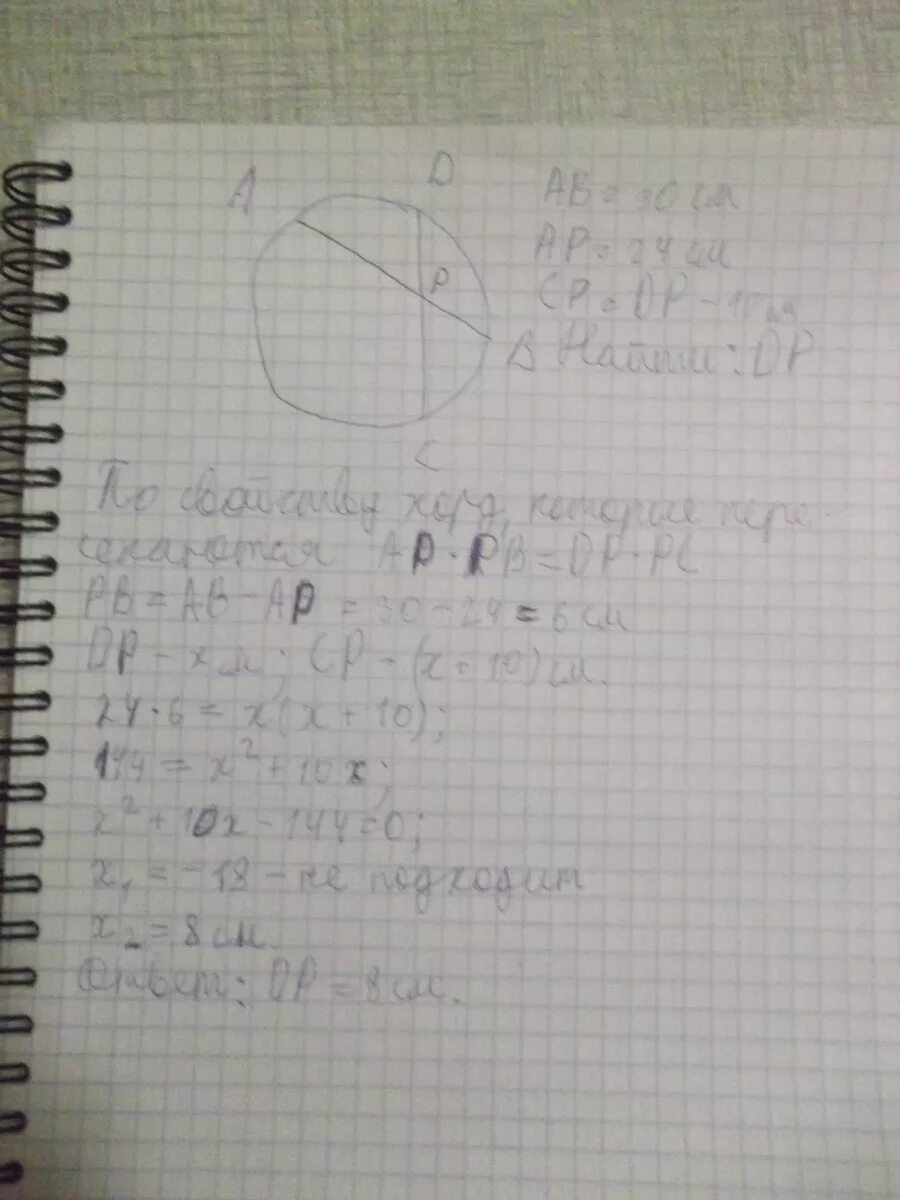 A
D
P
B
C
AB = 30 см
AP = 24 см
CP = DP - 10 см
Найти: DP
По свойству хорд, которые пере-
секаются AP · PB = DP · PC
PB = AB - AP = 30 - 24 = 6 см
DP - x см; CP - (x + 10) см.
24 · 6 = x(x + 10);
144 = x² + 10x;
x² + 10x - 144 = 0;
x₁ = -18 - не подходит
x₂ = 8 см.
Ответ: DP = 8 см.